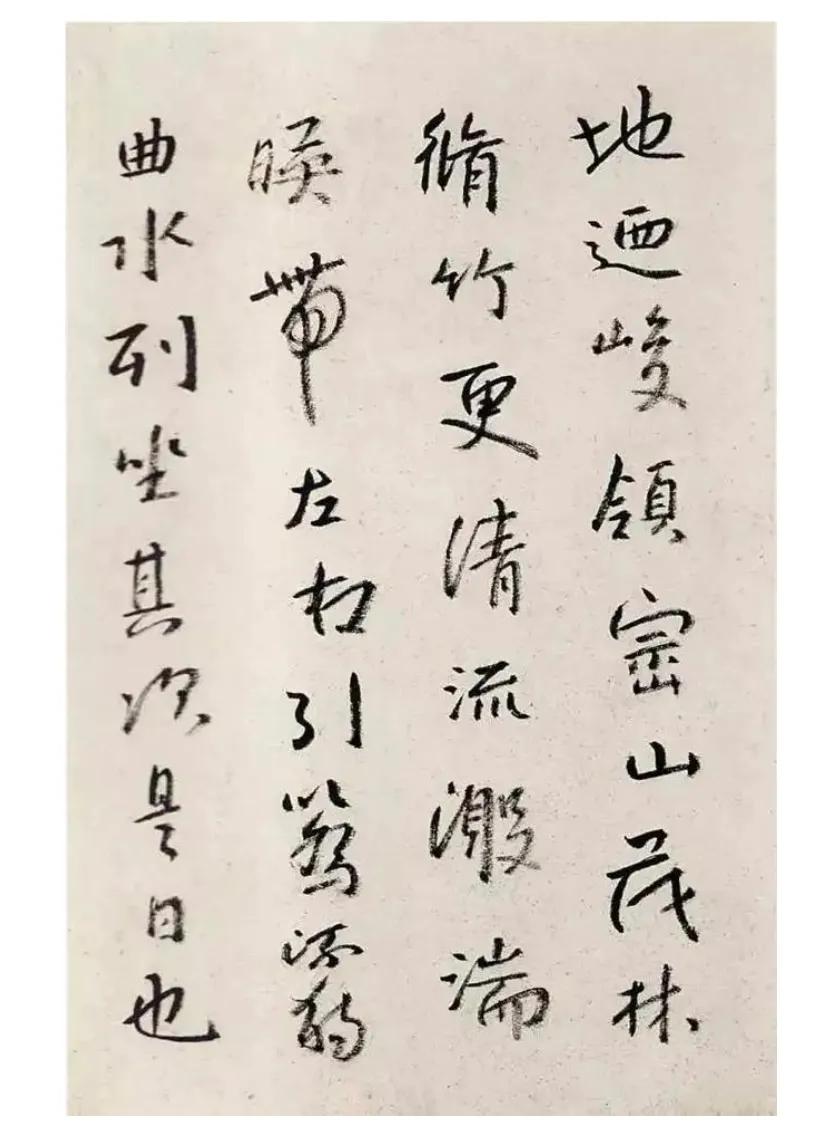 地迺峻領崇山茂林
脩竹更清流激湍
暎帶左右引以為流觴
曲水列坐其次是日也